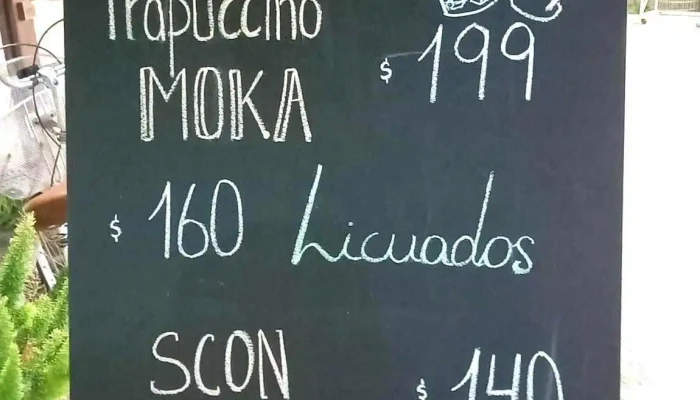 frapuccino
MOKA
$ 199
$ 160 Licuados
SCON
$ 140